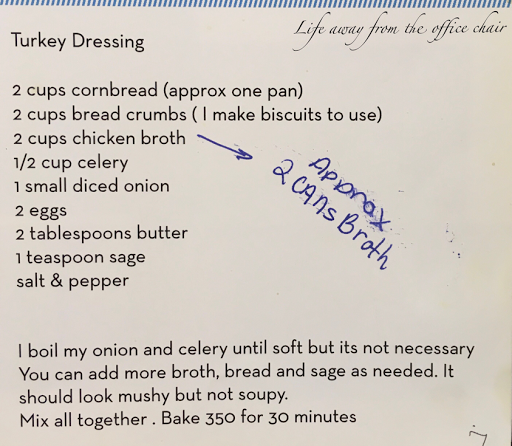 Life away from the office chair
Turkey Dressing
2 cups cornbread (approx one pan)
2 cups bread crumbs ( I make biscuits to use)
2 cups chicken broth
Approx
2 CANs Broth
1/2 cup celery
1 small diced onion
2 eggs
2 tablespoons butter
1 teaspoon sage
salt & pepper
I boil my onion and celery until soft but its not necessary
You can add more broth, bread and sage as needed. It
should look mushy but not soupy.
Mix all together . Bake 350 for 30 minutes